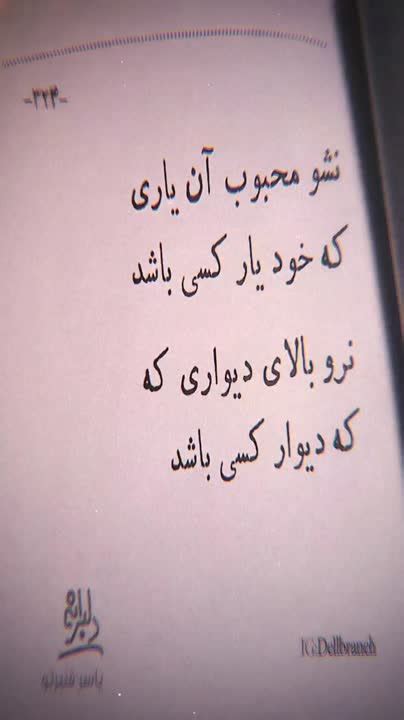 -۳۲۴-
نشو محبوب آن یاری
که خود یار کسی باشد
نرو بالای دیواری که
که دیوار کسی باشد
دلبرانه
یاسر قنبرلو
IG:Dellbraneh